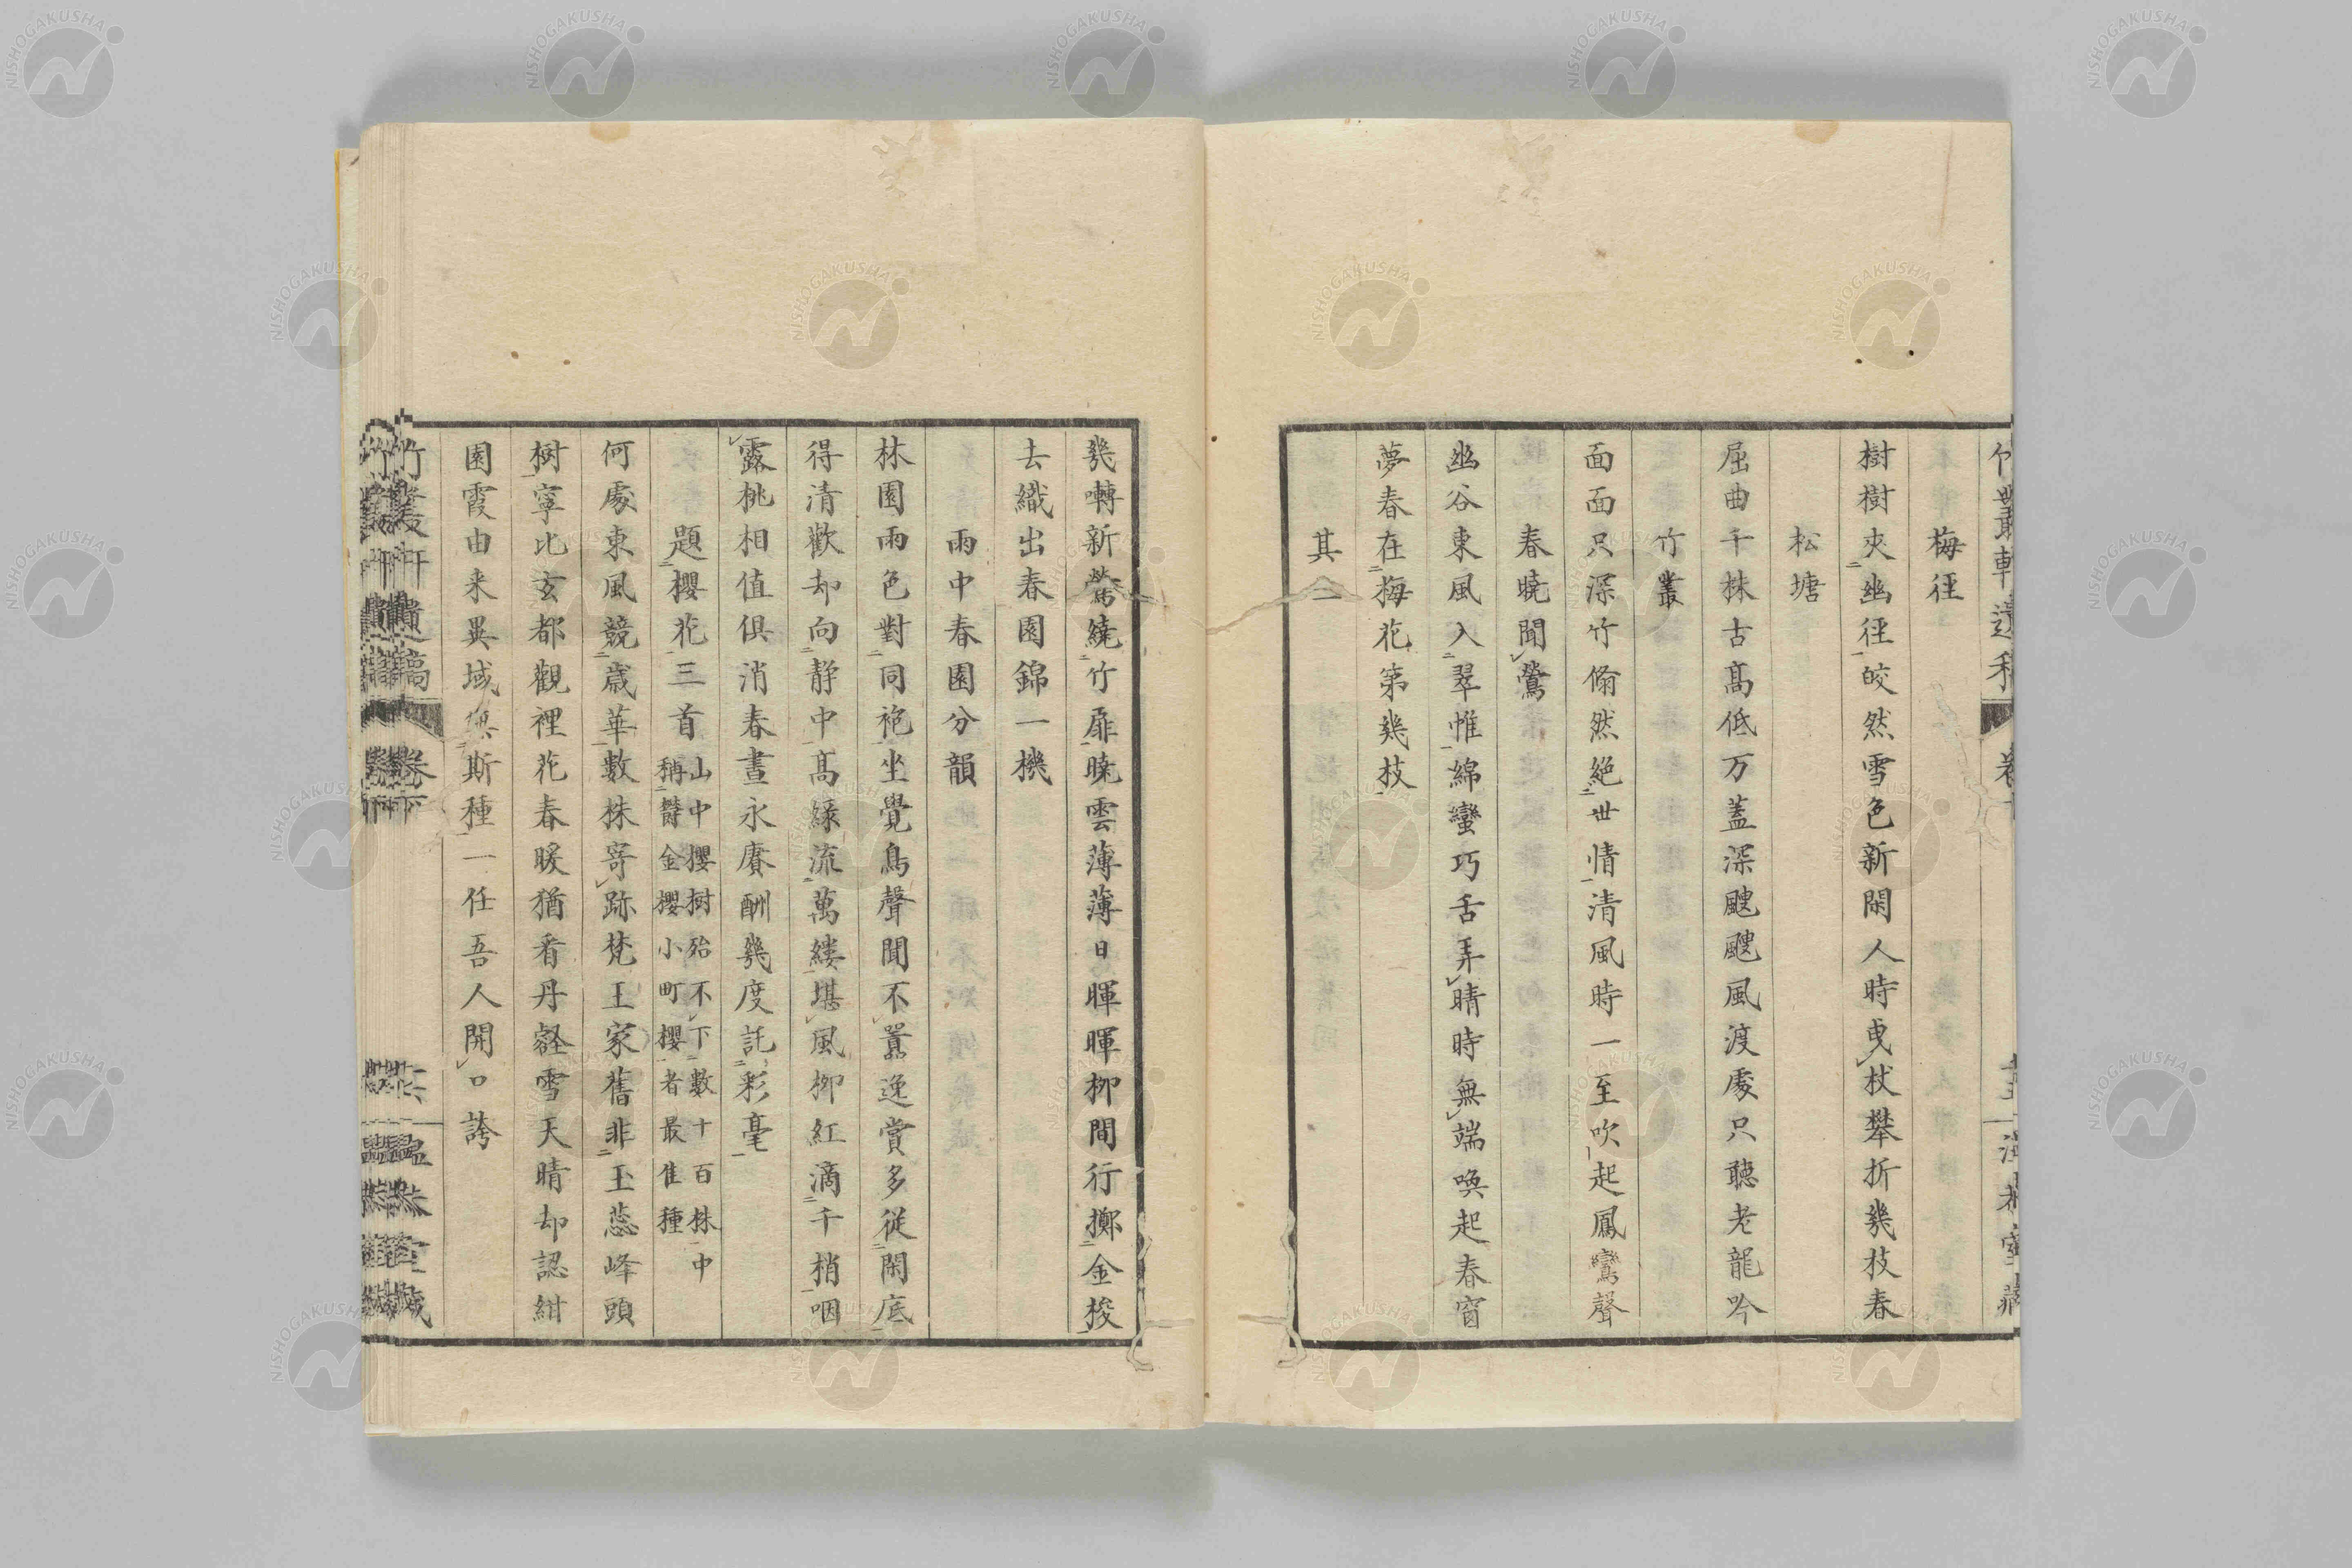 梅徑
樹樹夾幽徑皎然雪色新閑人時曳杖攀折幾枝春
松塘
屈曲千株古髙低万蓋深颼颼風渡處只聽老龍吟
竹叢
面面只深竹翛然絕世情清風時一至吹起鳳鸞聲
春曉聞鶯
幽谷東風入翠惟綿蠻巧舌弄晴時無端喚起春窗
夢春在梅花第幾枝
其二
幾囀新鶯繞竹扉曉雲薄薄日暉暉柳間行擲金梭
去織出春園錦一機
雨中春園分韻
林園雨色對同袍坐覺鳥聲聞不囂逸賞多從閑底
得清歡却向静中髙緑流萬縷堪風柳紅滴千梢咽
露桃相值俱消春晝永賡酬幾度託彩毫
題櫻花三首 山中櫻樹殆不下數十百株中
稱欎金櫻小町櫻者最隹種
何處東風競歳華數株寄跡梵王家舊非玉蕊峰頭
樹寧比玄都觀裡花春暖猶看丹壑雪天晴却認紺
園霞由来異域無斯種一任吾人開口誇
竹叢軒遺稿 卷下